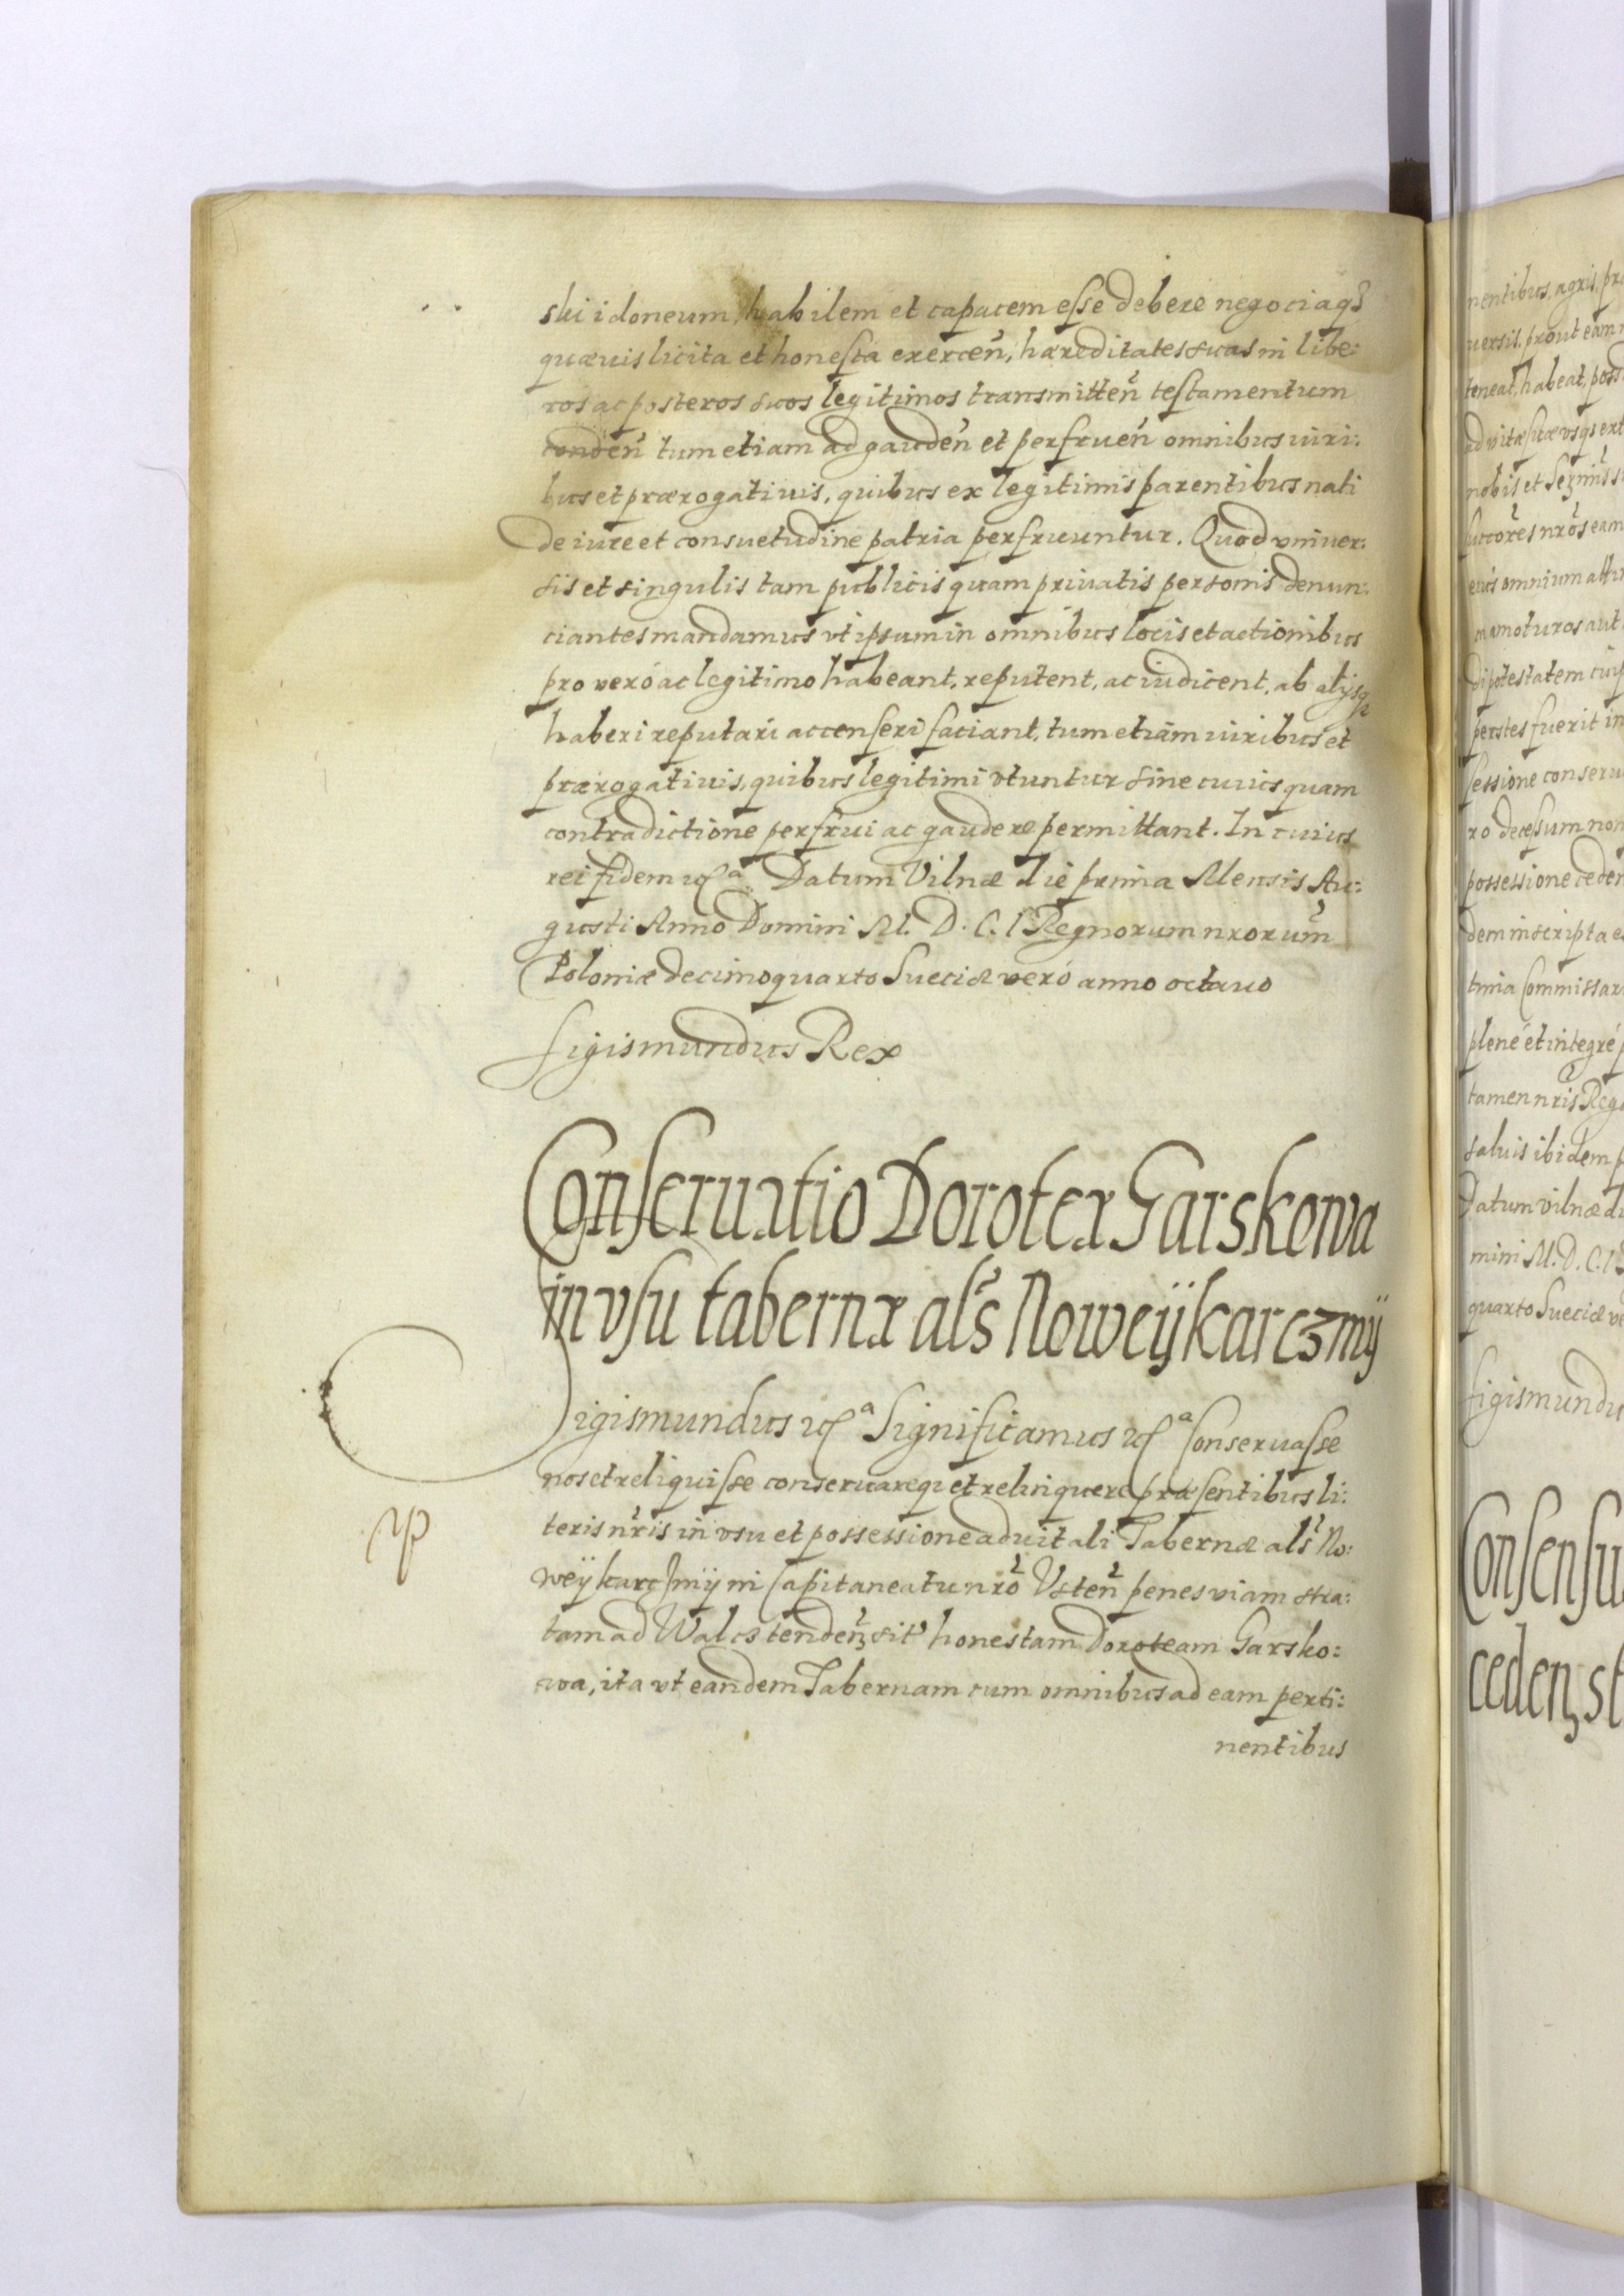 ski idoneum, habilem et capacem esse debere negociaqз
quæuis licita et honesta exercen̄, hæreditates suas in libe:
ros ac posteros suos legitimos transmitten̄ testamentum
conden̄ tum etiam ad gauden̄ et perfruen̄ omnibus iuri:
bus et prærogatiuis, quibus ex legitimis parentibus nati
de iure et consuetudine patria perfruuntur. Quod vniuer:
sis et singulis tam publicis quam priuatis personis denun:
ciantes mandamus vt ipsum in omnibus locis et actionibus
pro veró ac legitimo habeant, reputent, ac iudicent, ab alijsq
haberi reputari accenseri faciant, tum etiam iuribus et
prærogatiuis, quibus legitimi vtuntur sine cuiusquam
contradictione perfrui ac gaudere permittant. In cuius
rei fidem Datum Vilnæ die prima Mensis Au:
gusti Anno Domini M. D. C. I Regnorum nrorum
Poloniæ decimoquarto Sueciæ veró anno octauo
Sigismundus Rex
Conseruatio Doroteæ Garskowa
in vsu tabernæ als Noweÿ karczmÿ
Sigismundus Significamus Conseruasse
nos et reliquisse conseruareqз et relinquere præsentibus li:
teris nris in vsu et possessione aduitali Tabernæ als No:
weÿ karczmÿ in Capitaneatu nro Vsten̄ penes viam stra:
tam ad Walcz tenden̄ sit honestam Doroteam Garsko:
wa, ita vt eandem Tabernam cum omnibus ad eam perti:
nentibus
nentibus, agris,
uersis, prout eam
teneat, habeat,
ad vitæ suæ vsqз
nobis et
succores nros eam
eius omnium
amoturos aut
di potestatem
perstes fuerit in
sessione
ro decessum non
possessione
dem inscripta
Commissar
plené et integré
tamen nris
saluis ibidem
Datum vilnæ
mini M. D. C. I
quarto Sueciæ
Sigismundu
Consensu
ceden